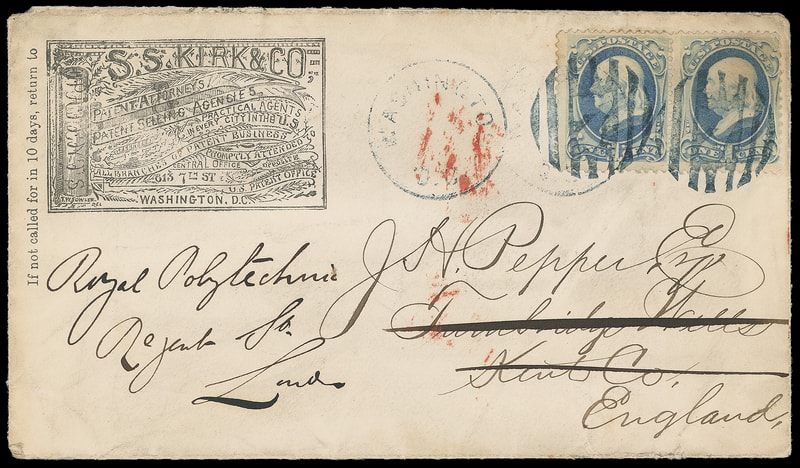 If not called for in 10 days, return to
S.S. KIRK & CO.
PATENT ATTORNEYS
PATENT SELLING AGENCIES
PRACTICAL AGENTS
IN EVERY CITY IN THE U.S.
ALL BRANCHES OF PATENT BUSINESS
PROMPTLY ATTENDED TO
CENTRAL OFFICE
613 7TH ST
OPPOSITE
U.S. PATENT OFFICE
WASHINGTON, D.C.
WASHINGTON
D.C.
U.S. POSTAGE
ONE CENT
U.S. POSTAGE
ONE CENT
J. H. Pepper, Esq
Tunbridge Wells
Kent Co,
England,
Royal Polytechnic
Regent St.
London